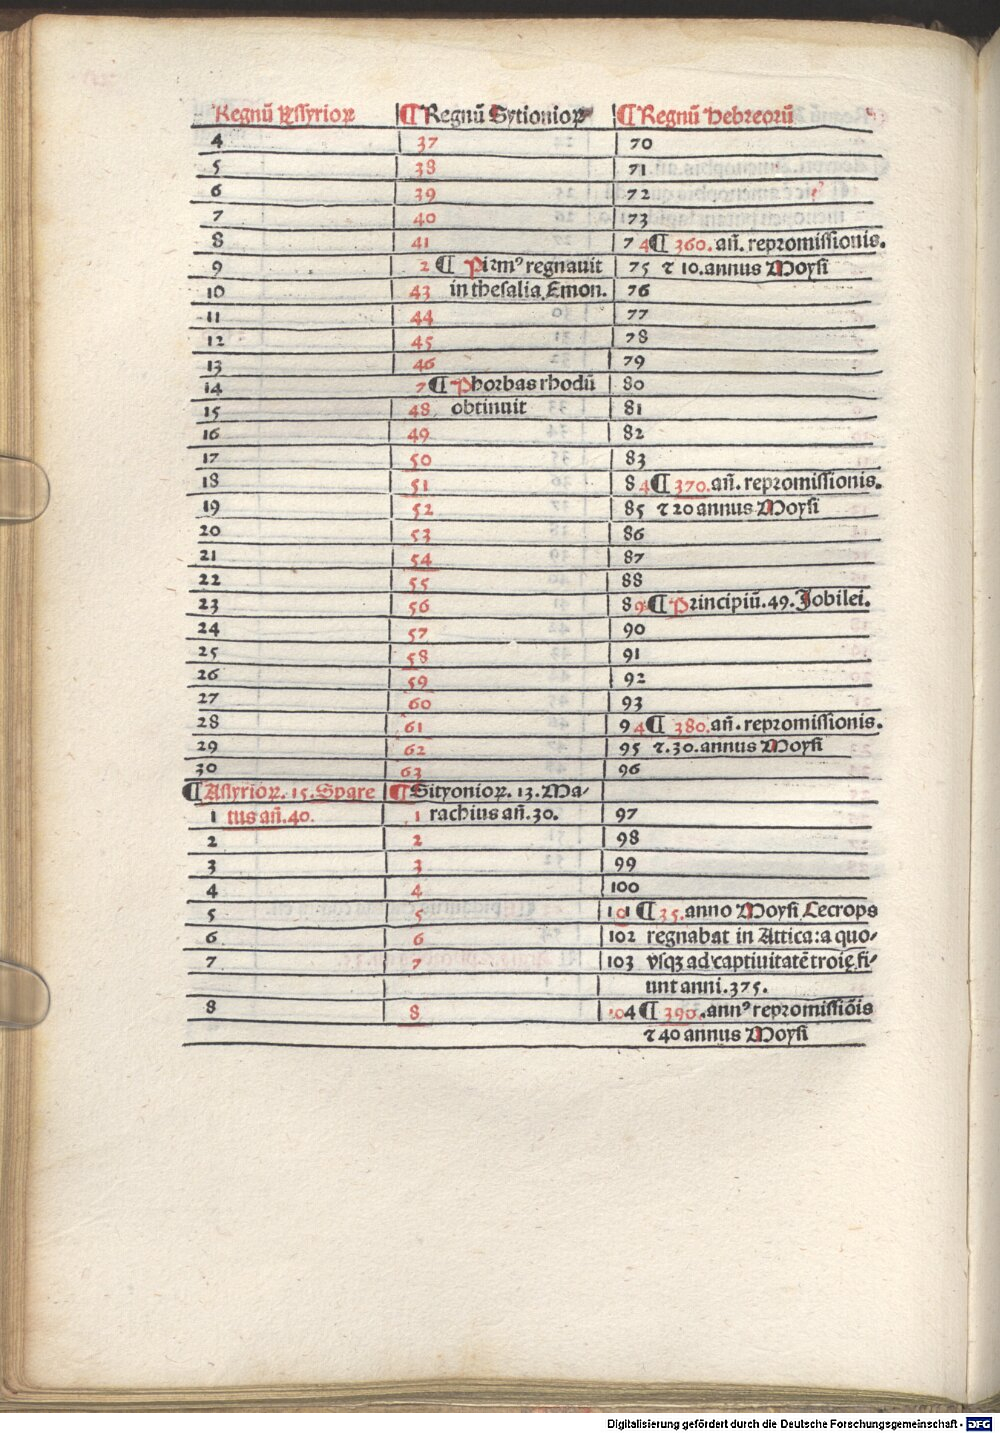 Regnū Assyrioꝝ ¶ Regnū Sytionioꝝ ¶ Regnū Hebreorū
4 37 70
5 38 71
6 39 72
7 40 73
8 41 74 ¶ 360. añ. repromissionis.
9 2 ¶ Pirmꝰ regnauit 75 ⁊ 10. annus Moysi
10 43 in thesalia Emon. 76
11 44 77
12 45 78
13 46 79
14 7 ¶ Phorbas rhodū 80
15 48 obtinuit 81
16 49 82
17 50 83
18 51 84 ¶ 370. añ. repromissionis.
19 52 85 ⁊ 20 annus Moysi
20 53 86
21 54 87
22 55 88
23 56 89 ¶ Principiū. 49. Jobilei.
24 57 90
25 58 91
26 59 92
27 60 93
28 61 94 ¶ 380. añ. repromissionis.
29 62 95 ⁊. 30. annus Moysi
30 63 96
¶ Assyrioꝝ. 15. Spare ¶ Sityonioꝝ. 13. Ma-
1 tus añ. 40. 1 rachius añ. 30. 97
2 2 98
3 3 99
4 4 100
5 5 101 ¶ 35. anno Moysi Cecrops
6 6 102 regnabat in Attica: a quo-
7 7 103 vsqꝫ ad captiuitatē troię fi-
unt anni. 375.
8 8 104 ¶ 390. annꝰ repromissiōis
⁊ 40 annus Moysi
Digitalisierung gefördert durch die Deutsche Forschungsgemeinschaft - DFG